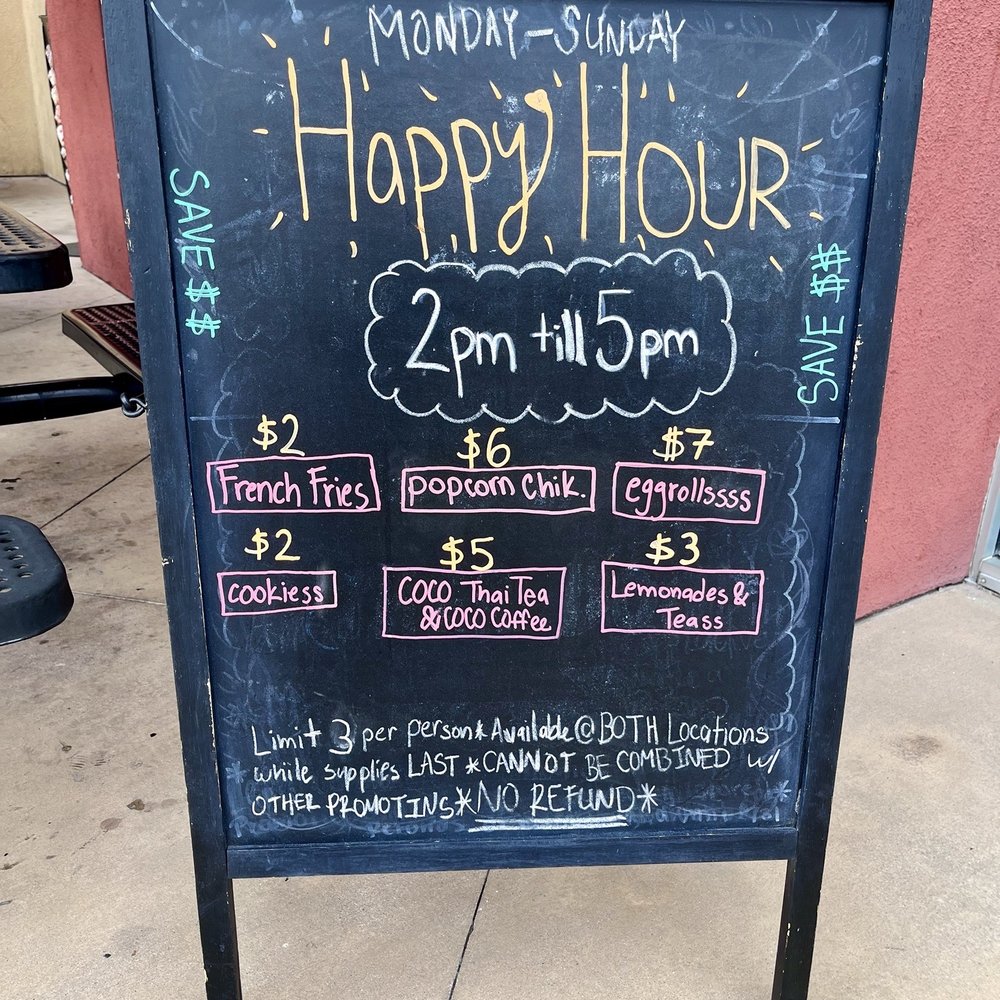 MONDAY-SUNDAY
Happy HOUR
SAVE $$
SAVE $$
2pm till 5pm
$2 $6 $7
French Fries popcorn Chik. eggrollssss
$2 $5 $3
cookiess COCO Thai Tea Lemonades &
& COCO Coffee Teass
Limit 3 per person*Available @ BOTH Locations
*while supplies LAST *CANNOT BE COMBINED w/
OTHER PROMOTINS*NO REFUND*